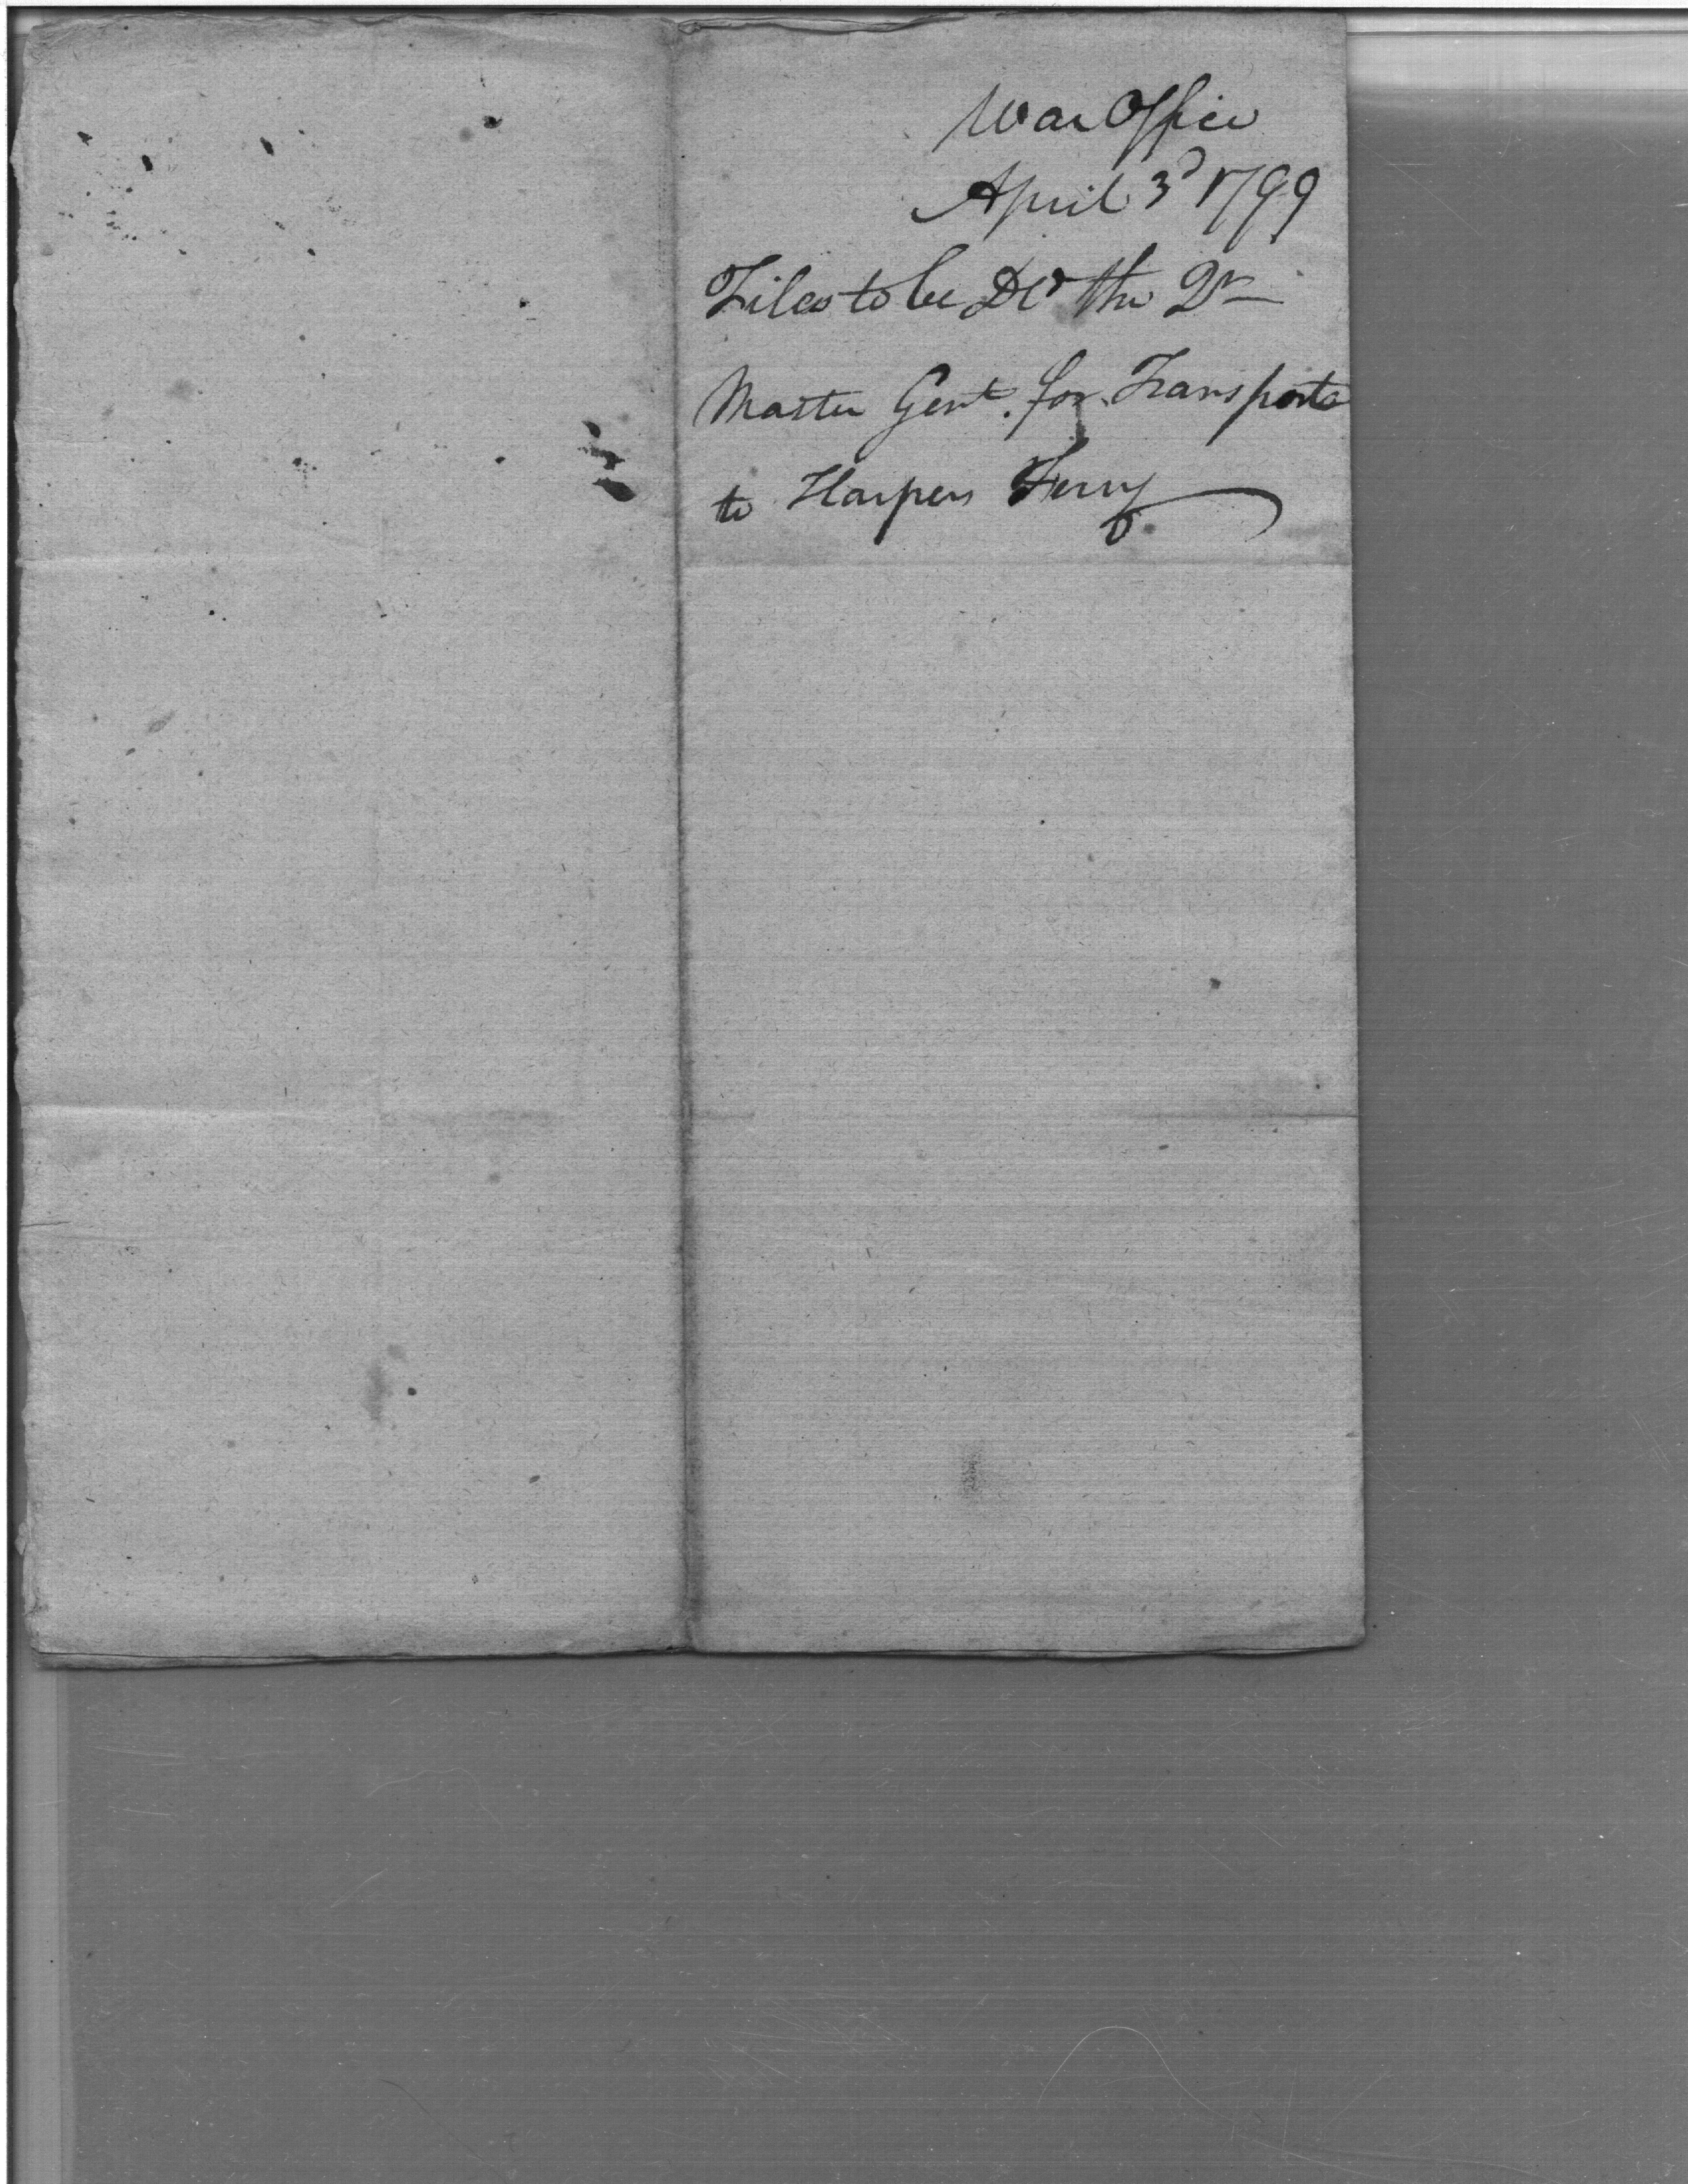 War Office
April 3d 1799
Files to be Dld the Qr
Master Genl. for Transporta
to Harpers Ferry